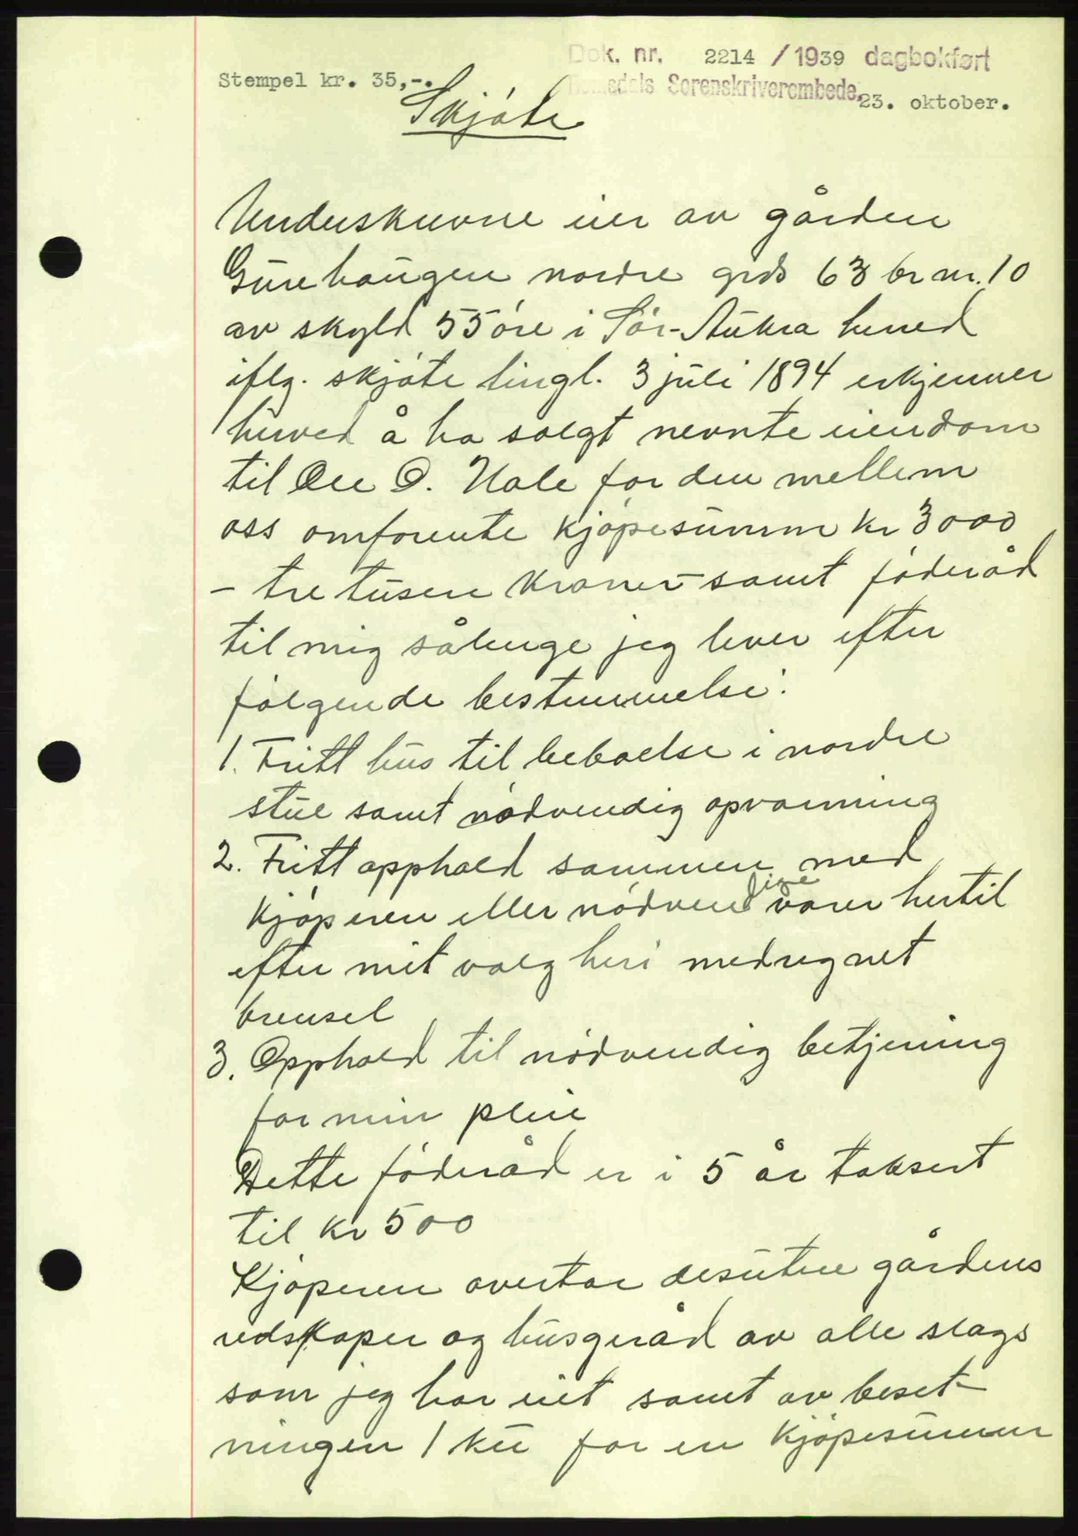 Dok. nr. 2214 / 1939 dagbokført
Stempel kr. 35,-.
Romsdals Sorenskriverembede, 23. oktober.
Skjøte
Underskrevne eier av gården
Gürehaugen nordre grds 63 br nr. 10
av skyld 55 øre i Sør-Aukra herred
iflg. skjøte tingl. 3 juli 1894 erkjenner
herved å ha solgt nevnte eiendom
til Ole O. Hole for den mellem
oss omforente kjøpesumm kr 3000
- tre tusen kroner - samt føderåd
til mig sålenge jeg lever efter
følgende bestemmelse:
1. Fritt hus til beboelse i nordre
stue samt nødvendig opvarming
2. Fritt opphold sammen med
kjøperen eller nødvendige varer hertil
efter mit valg heri medregnet
brensel
3. Opphold til nødvendig betjening
for min pleie
Dette føderåd er i 5 år taksert
til kr 500
Kjøperen overtar desuten gårdens
redskaper og husgeråd av alle slags
som jeg har eiet samt av beset-
ningen 1 ku for en kjøpesumm